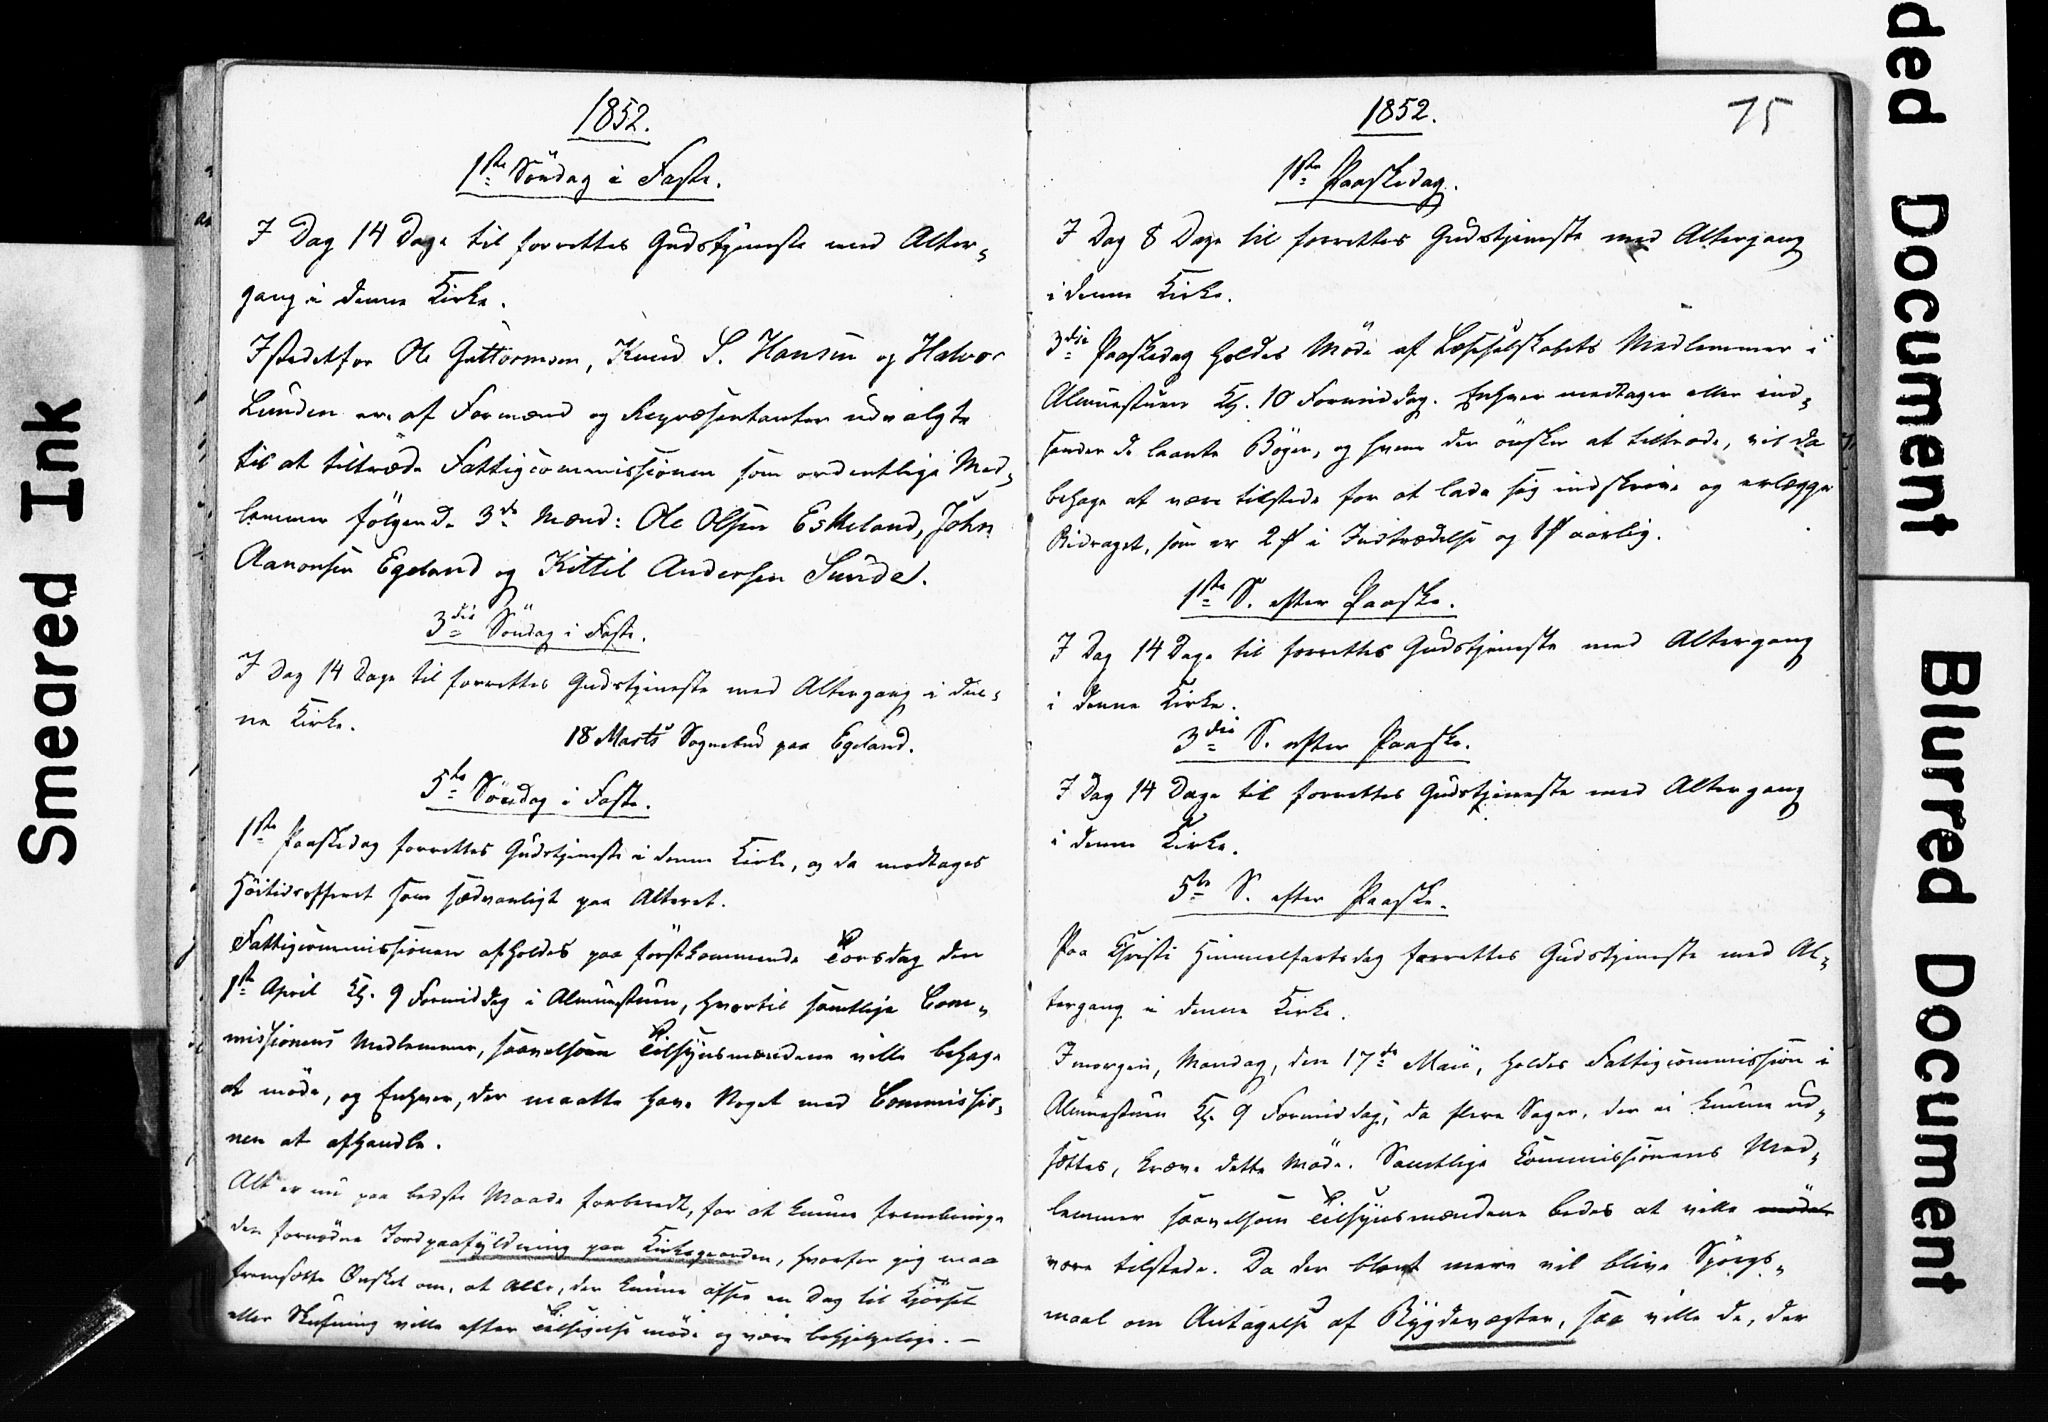 1852.
1ste Søndag i Faste.
I Dag 14 Dage til forrettes Gudstjeneste med Alter-
gang i denne Kirke.
Istedetfor Ole Guttormsen, Knud S. Hansen og Halvor
Lunden ere af Formænd og Repræsentanter udvalgte
til at tiltræde Fattigcommissionen som ordentlige Med-
lemmer følgende 3de Mænd: Ole Olsen Eskeland, John
Aanonsen Egeland og Kittil Andersen Sunde.
3die Søndag i Faste.
I Dag 14 Dage til forrettes Gudstjeneste med Altergang i den-
ne Kirke.
18 Marts Sognebud paa Egeland.
5te Søndag i Faste.
1ste Paaskedag forrettes Gudstjeneste i denne Kirke, og da modtages
Høitidsofferet som sædvanligt paa Alteret.
Fattigcommissionen afholdes paa førstkommende Torsdag den
1ste April Kl. 9 Formiddag i Almuestuen, hvortil samtlige Com-
missionens Medlemmer, saavelsom Tilsynsmændene ville behage
at møde, og Enhver, der maatte have Noget med Commissio-
nen at afhandle.
Alt er nu paa bedste Maade forberedt, for at kunne frembringe
den fornødne Jordpaafyldning paa Kirkegaarden, hvorfor jeg maa
fremsætte Ønsket om, at Alle, der kunne afsee en Dag til Kjørsel
eller Skufning ville efter Tilsigelse møde og være behjelpelige. —
1852.
75
1ste Paaskedag.
I Dag 8 Dage til forrettes Gudstjeneste med Altergang
i denne Kirke.
3die Paaskedag holdes Møde af Læseselskabets Medlemmer i
Almuestuen Kl. 10 Formiddag. Enhver medtager eller ind-
sender de laante Bøger, og hvem der ønsker at tiltræde, vil da
behage at være tilstede for at lade sig indskrive og erlægge
Bidraget, som er 2 ß i Indtrædelse og 1 ß aarlig.
1ste S. efter Paaske.
I Dag 14 Dage til forrettes Gudstjeneste med Altergang
i denne Kirke.
3die S. efter Paaske.
I Dag 14 Dage til forrettes Gudstjeneste med Altergang
i denne Kirke.
5te S. efter Paaske.
Paa Christi Himmelfartsdag forrettes Gudstjeneste med Al-
tergang i denne Kirke.
I morgen, Mandag, den 17de Maii, holdes Fattigcommission i
Almuestuen Kl. 9 Formiddag, da flere Sager, der ei kunne ud-
sættes, kræve dette Møde. Samtlige Commissionens Med-
lemmer saavelsom Tilsynsmændene bedes at ville møde
være tilstede. Da der blant mere vil blive Spørgs-
maal om Antagelse af Bygdevægter, saa ville de, der
Smeared Ink
ded Document
Blurred Document